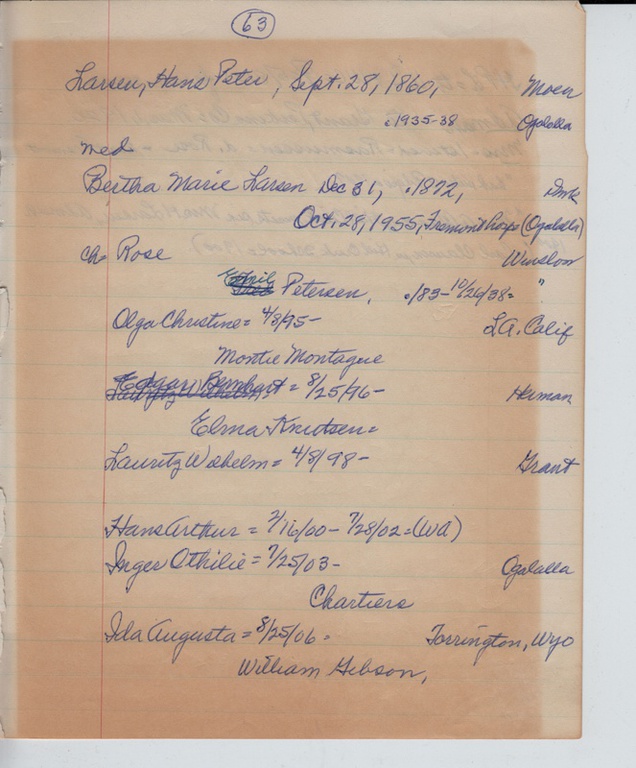 63
Larsen, Hans Peter, Sept. 28, 1860, Moen
c1935-38 Ogalalla
med
Bertha Marie Larsen Dec 31, c1872, Dmk
Oct. 28, 1955, Fremont Crops (Ogalalla)
ch Rose Winslow
Emil Petersen, c/83-10/26/38= "
Olga Christine = 4/8/95- LA. Calif
Montie Montague
Edgar Bernhart = 8/25/96- Herman
Elma Knutsen=
Lauritz Wilhelm = 4/8/98- Grant
Hans Arthur = 2/16/00- 7/28/02=(WA)
Inger Othilie = 7/25/03- Ogalalla
Chartiers
Ida Augusta = 8/25/06= Torrington, Wyo
William Gibson,